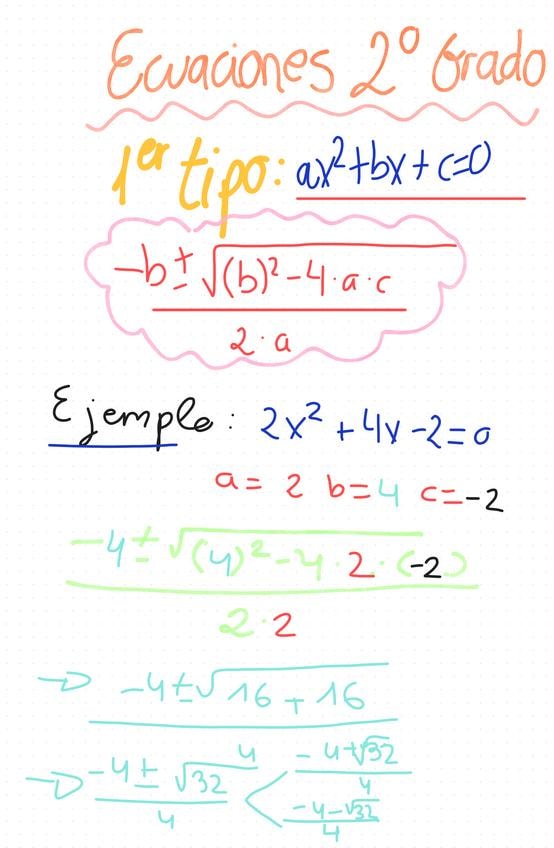 Ecuaciones 2º Grado
1er tipo: ax²+bx+c=0
-b ± √(b)²-4·a·c
2·a
Ejemplo: 2x²+4x-2=0
a= 2 b=4 c=-2
-4±√(4)²-4·2·(-2)
2·2
→ -4±√16+16
4
→ -4±√32 < -4+√32
4 4
-4-√32
4